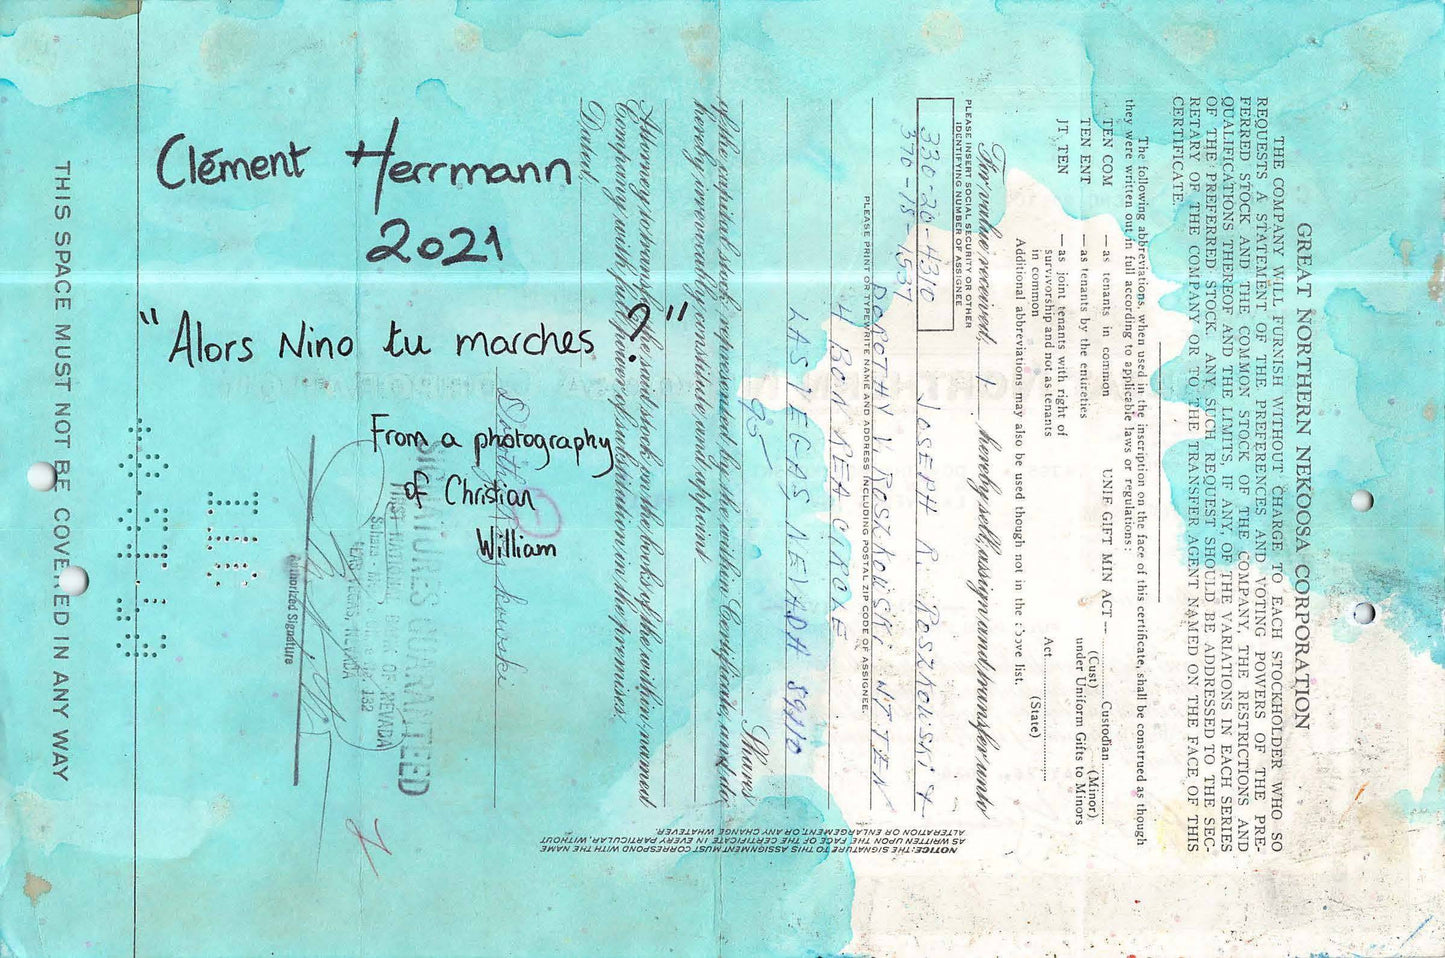 Clément Herrmann
2021
"Alors Nino tu marches ?"
From a photography
of Christian
William
GREAT NORTHERN NEKOOSA CORPORATION
THE COMPANY WILL FURNISH WITHOUT CHARGE TO EACH STOCKHOLDER WHO SO
REQUESTS A STATEMENT OF THE PREFERENCES AND VOTING POWERS OF THE PRE-
FERRED STOCK AND THE COMMON STOCK OF THE COMPANY, THE RESTRICTIONS AND
QUALIFICATIONS THEREOF AND THE LIMITS, IF ANY, OF THE VARIATIONS IN EACH SERIES
OF THE PREFERRED STOCK. ANY SUCH REQUEST SHOULD BE ADDRESSED TO THE SEC-
RETARY OF THE COMPANY OR TO THE TRANSFER AGENT NAMED ON THE FACE OF THIS
CERTIFICATE.
The following abbreviations, when used in the inscription on the face of this certificate, shall be construed as though
they were written out in full according to applicable laws or regulations:
TEN COM — as tenants in common UNIF GIFT MIN ACT — Custodian
(Cust) (Minor)
TEN ENT — as tenants by the entireties under Uniform Gifts to Minors
JT. TEN — as joint tenants with right of
survivorship and not as tenants Act
in common (State)
Additional abbreviations may also be used though not in the above list.
For value received, I hereby sell, assign and transfer unto
PLEASE INSERT SOCIAL SECURITY OR OTHER
IDENTIFYING NUMBER OF ASSIGNEE
330-20-4310
370-15-1537
JOSEPH R. ROSZKOWSKI &
DOROTHY V. ROSZKOWSKI JT TEN
PLEASE PRINT OR TYPEWRITE NAME AND ADDRESS INCLUDING POSTAL ZIP CODE OF ASSIGNEE.
4 BON REA CIRCLE
LAS VEGAS NEVADA 89110
95 Shares
of the capital stock represented by the within Certificate, and do
hereby irrevocably constitute and appoint
Attorney to transfer the said stock on the books of the within-named
Company with full power of substitution in the premises.
Dated,
NOTICE: THE SIGNATURE TO THIS ASSIGNMENT MUST CORRESPOND WITH THE NAME
AS WRITTEN UPON THE FACE OF THE CERTIFICATE IN EVERY PARTICULAR, WITHOUT
ALTERATION OR ENLARGEMENT, OR ANY CHANGE WHATEVER.
SIGNATURES GUARANTEED
FIRST NATIONAL BANK OF NEVADA
LAS VEGAS, NEVADA
Authorized Signature
THIS SPACE MUST NOT BE COVERED IN ANY WAY